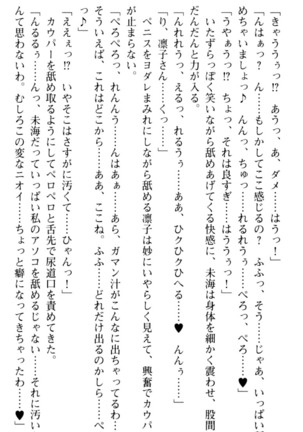 「きゃううっ!? あ、あ、ダメ……はうっ!」
「んはぁっ? ん、……もしかしてここ感じるの? ふふっ、そう……じゃあ、いっぱい舐
めちゃいましょ♪ んんっ、ちゅっ……れるれうぅ……べろっ、べろ……♥」
「うやぁうっ!? ちょっ、それは良すぎ……はううぅっ!」
いたずらっぽく笑いながら舐めあげてくる快感に、未海は身体を細かく震わせ、股間に
だんだんと力が入る。
「んれれうぅっ、えるっ、れるうっ……ああ、ひクひクひへる……♥ んんぅ……」
「り、凛子さん……くぅっ!」
ペニスをヨダレまみれにしながら舐める凛子は妙にいやらしく見えて、興奮でカウパー
が止まらない。
「べろべろっ、れんんぅ……んはあぁ……あら、ガマン汁がこんなに出ちゃってるわ……
そういえば、これはどこから……ああ、ここね。ふふ……どれだけ出るのかしら……ぺろ
っ♪」
「ええぇっ!? いやそこはさすがに汚くて……ひゃんっ!」
カウパーを舐め取るようにしてペロペロと舌先で尿道口を責めてきた。
「んるるぅ……んっ、未海だっていっぱい私のアソコを舐めるじゃない……それに汚いな
んて思わないわ。むしろこの変なニオイ……ちょっと癖になってきちゃったわ……♥」